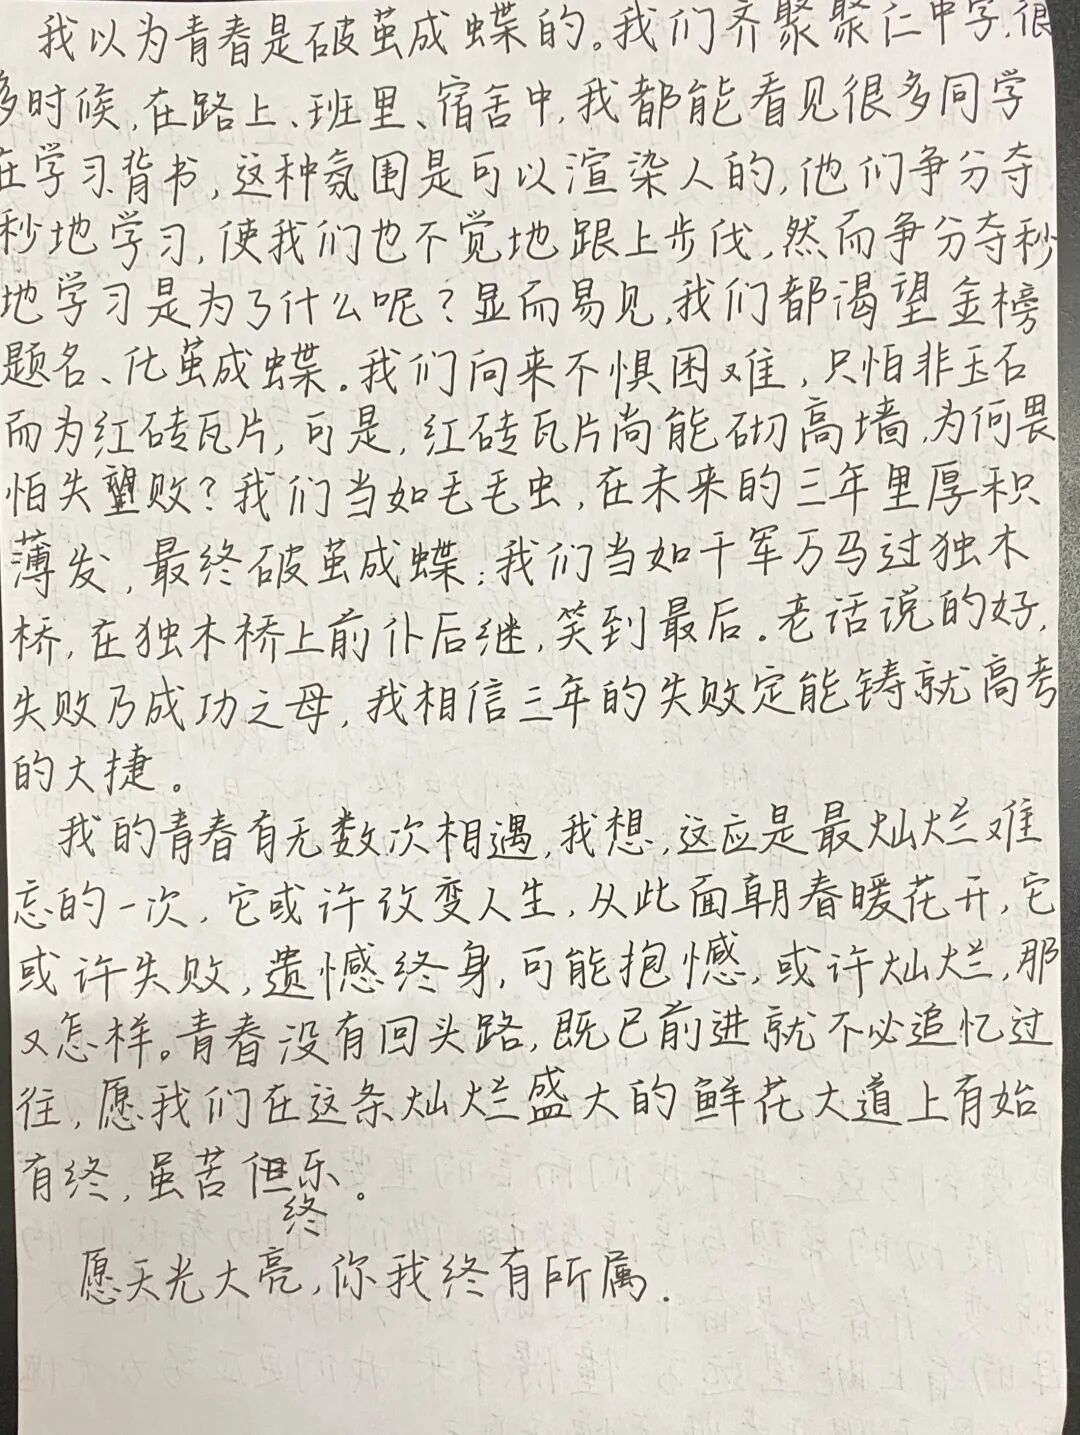 我以为青春是破茧成蝶的。我们齐聚聚仁中学,很
多时候,在路上、班里、宿舍中,我都能看见很多同学
在学习背书,这种氛围是可以渲染人的,他们争分夺
秒地学习,使我们也不觉地跟上步伐,然而争分夺秒
地学习是为了什么呢?显而易见,我们都渴望金榜
题名、化茧成蝶。我们向来不惧困难,只怕非玉石
而为红砖瓦片,可是,红砖瓦片尚能砌高墙,为何畏
怕失败?我们当如毛毛虫,在未来的三年里厚积
薄发,最终破茧成蝶;我们当如千军万马过独木
桥,在独木桥上前仆后继,笑到最后。老话说的好,
失败乃成功之母,我相信三年的失败定能铸就高考
的大捷。
我的青春有无数次相遇,我想,这应是最灿烂难
忘的一次,它或许改变人生,从此面朝春暖花开,它
或许失败,遗憾终身,可能抱憾,或许灿烂,那
又怎样。青春没有回头路,既已前进就不必追忆过
往,愿我们在这条灿烂盛大的鲜花大道上有始
有终,虽苦但终乐。
愿天光大亮,你我终有所属.